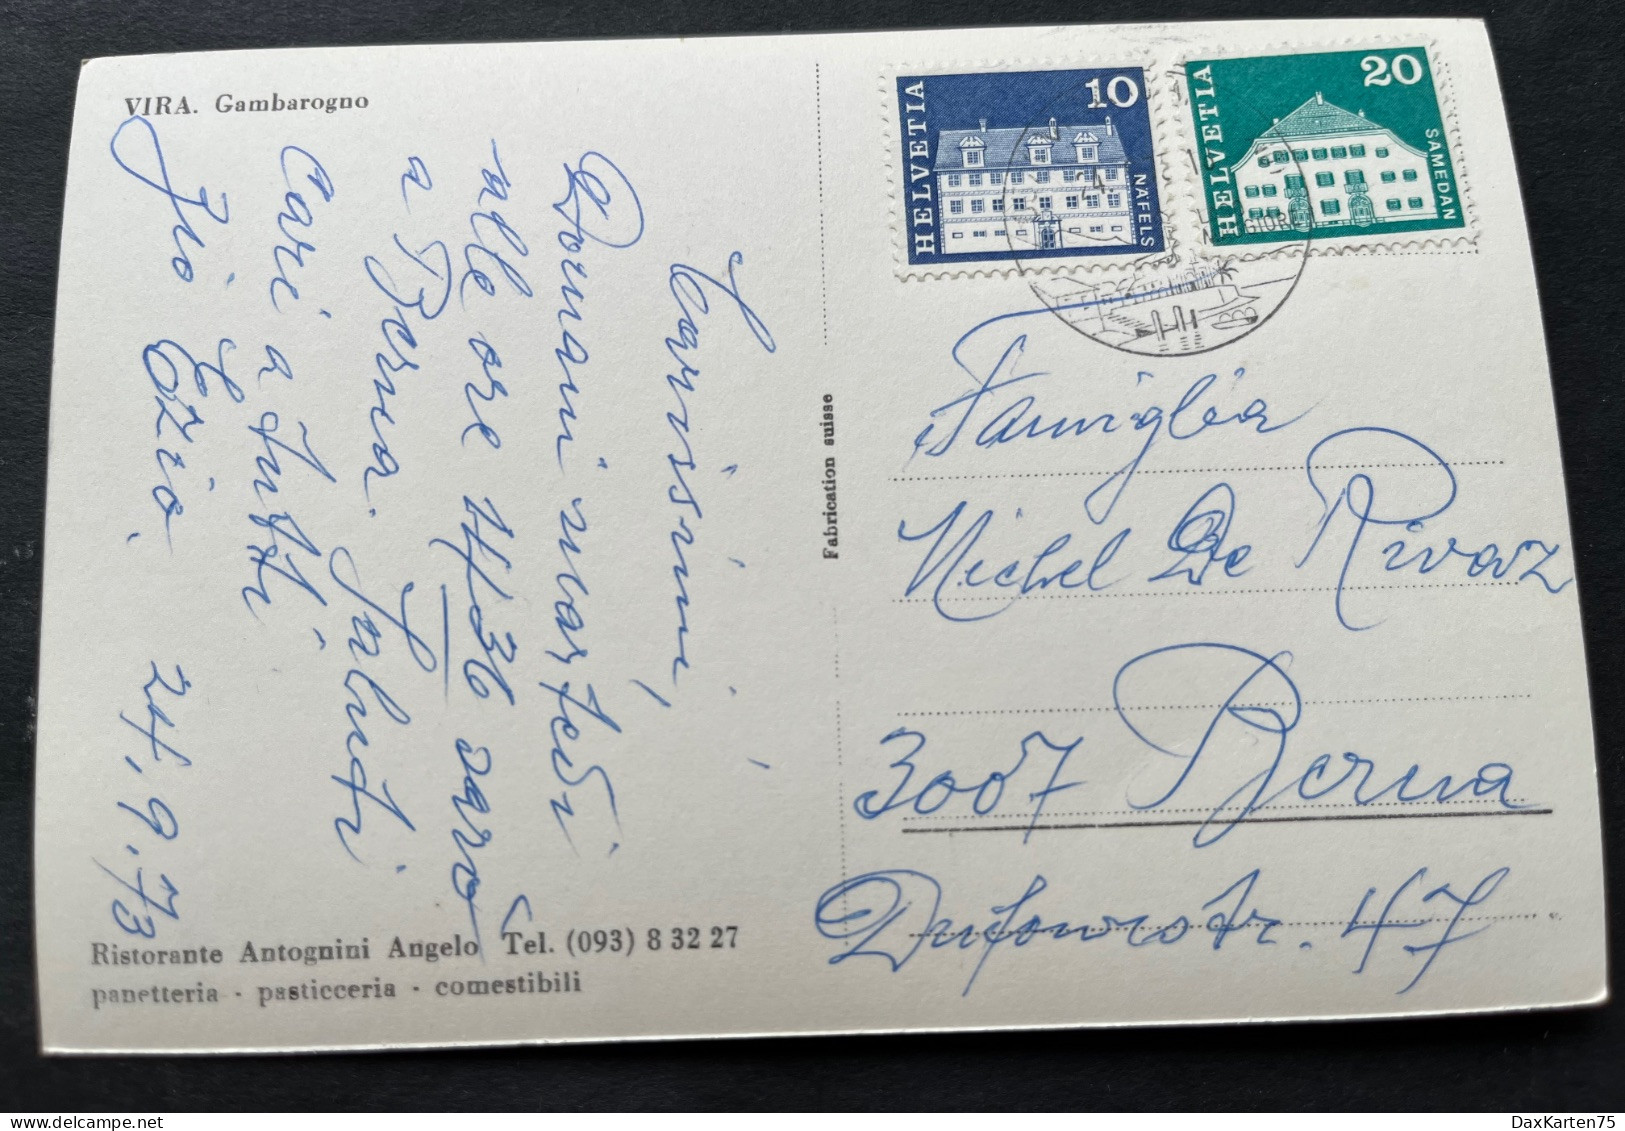 VIRA. Gambarogno
Carissimi,
Domani martedì
alle ore 14.36 sarò
a Berna. Saluti
Cari a tutti
Zio Ezio. 24.9.73
Ristorante Antognini Angelo Tel. (093) 8 32 27
panetteria - pasticceria - comestibili
Fabrication suisse
HELVETIA 10 NÄFELS
HELVETIA 20 SAMEDAN
24.
Famiglia
Michel De Rivaz
3007 Berna
Dufourstr. 47
DaxKarten75